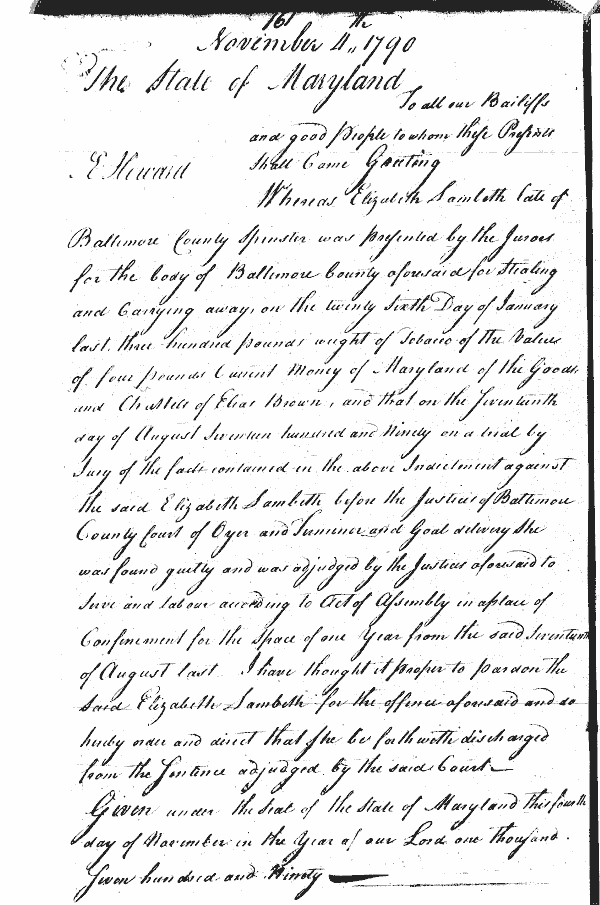 161
th
November 4,, 1790
The State of Maryland
To all our Bailiffs
and good People to whom these Presents
J E Howard
shall Come Greeting
Whereas Elizabeth Lambeth late of
Baltimore County Spinster was presented by the Jurors
for the body of Baltimore County aforesaid for Stealing
and Carrying away, on the twenty sixth Day of January
last, three hundred pounds weight of Tobacco of the Value
of four pounds Current Money of Maryland of the Goods
and Chattels of Elias Brown, and that on the Seventeenth
day of August Seventeen hundred and Ninety on a trial by
Jury of the facts contained in the above Indictment against
the said Elizabeth Lambeth before the Justices of Baltimore
County Court of Oyer and Terminer and Goal delivery She
was found guilty and was adjudged by the Justices aforesaid to
serve and labour according to Act of Assembly in a place of
Confinement for the Space of one Year from the said Seventeenth
of August last I have thought it proper to pardon the
said Elizabeth Lambeth for the offence aforesaid and do
hereby order and direct that she be forthwith discharged
from the Sentence adjudged by the said Court—
Given under the seal of the State of Maryland this fourth
day of November in the Year of our Lord one thousand
Seven hundred and Ninety